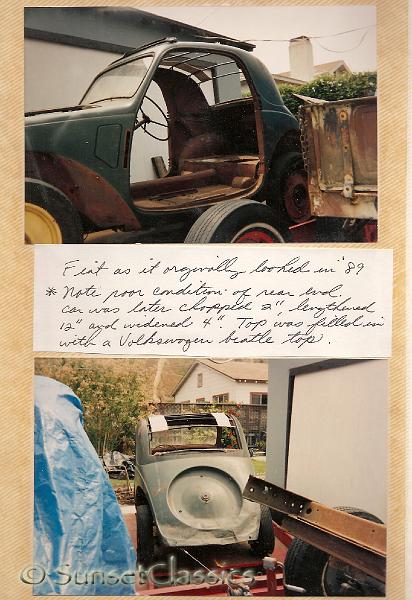 Fiat as it orginally looked in '89
* Note poor condition of rear end.
car was later chopped 2", lengthened
12" and widened 4". Top was filled in
with a Volkswagen beatle top.
© SunsetClassics